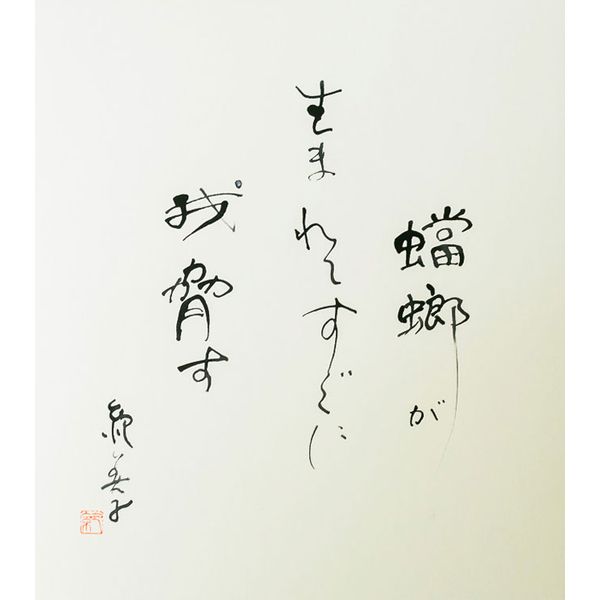 蟷螂が
生まれてすぐに
我脅す